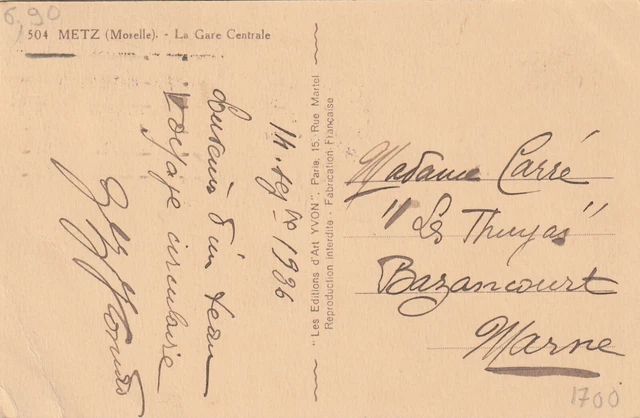 6,90
504 METZ (Moselle). - La Gare Centrale
14. Sep bre 1936
Souvenir d'un beau
voyage circulaire
"Les Editions d'Art YVON", Paris, 15, Rue Martel
Reproduction interdite - Fabrication Française
Madame Carré
"Les Thuyas"
Bazancourt
Marne
1700